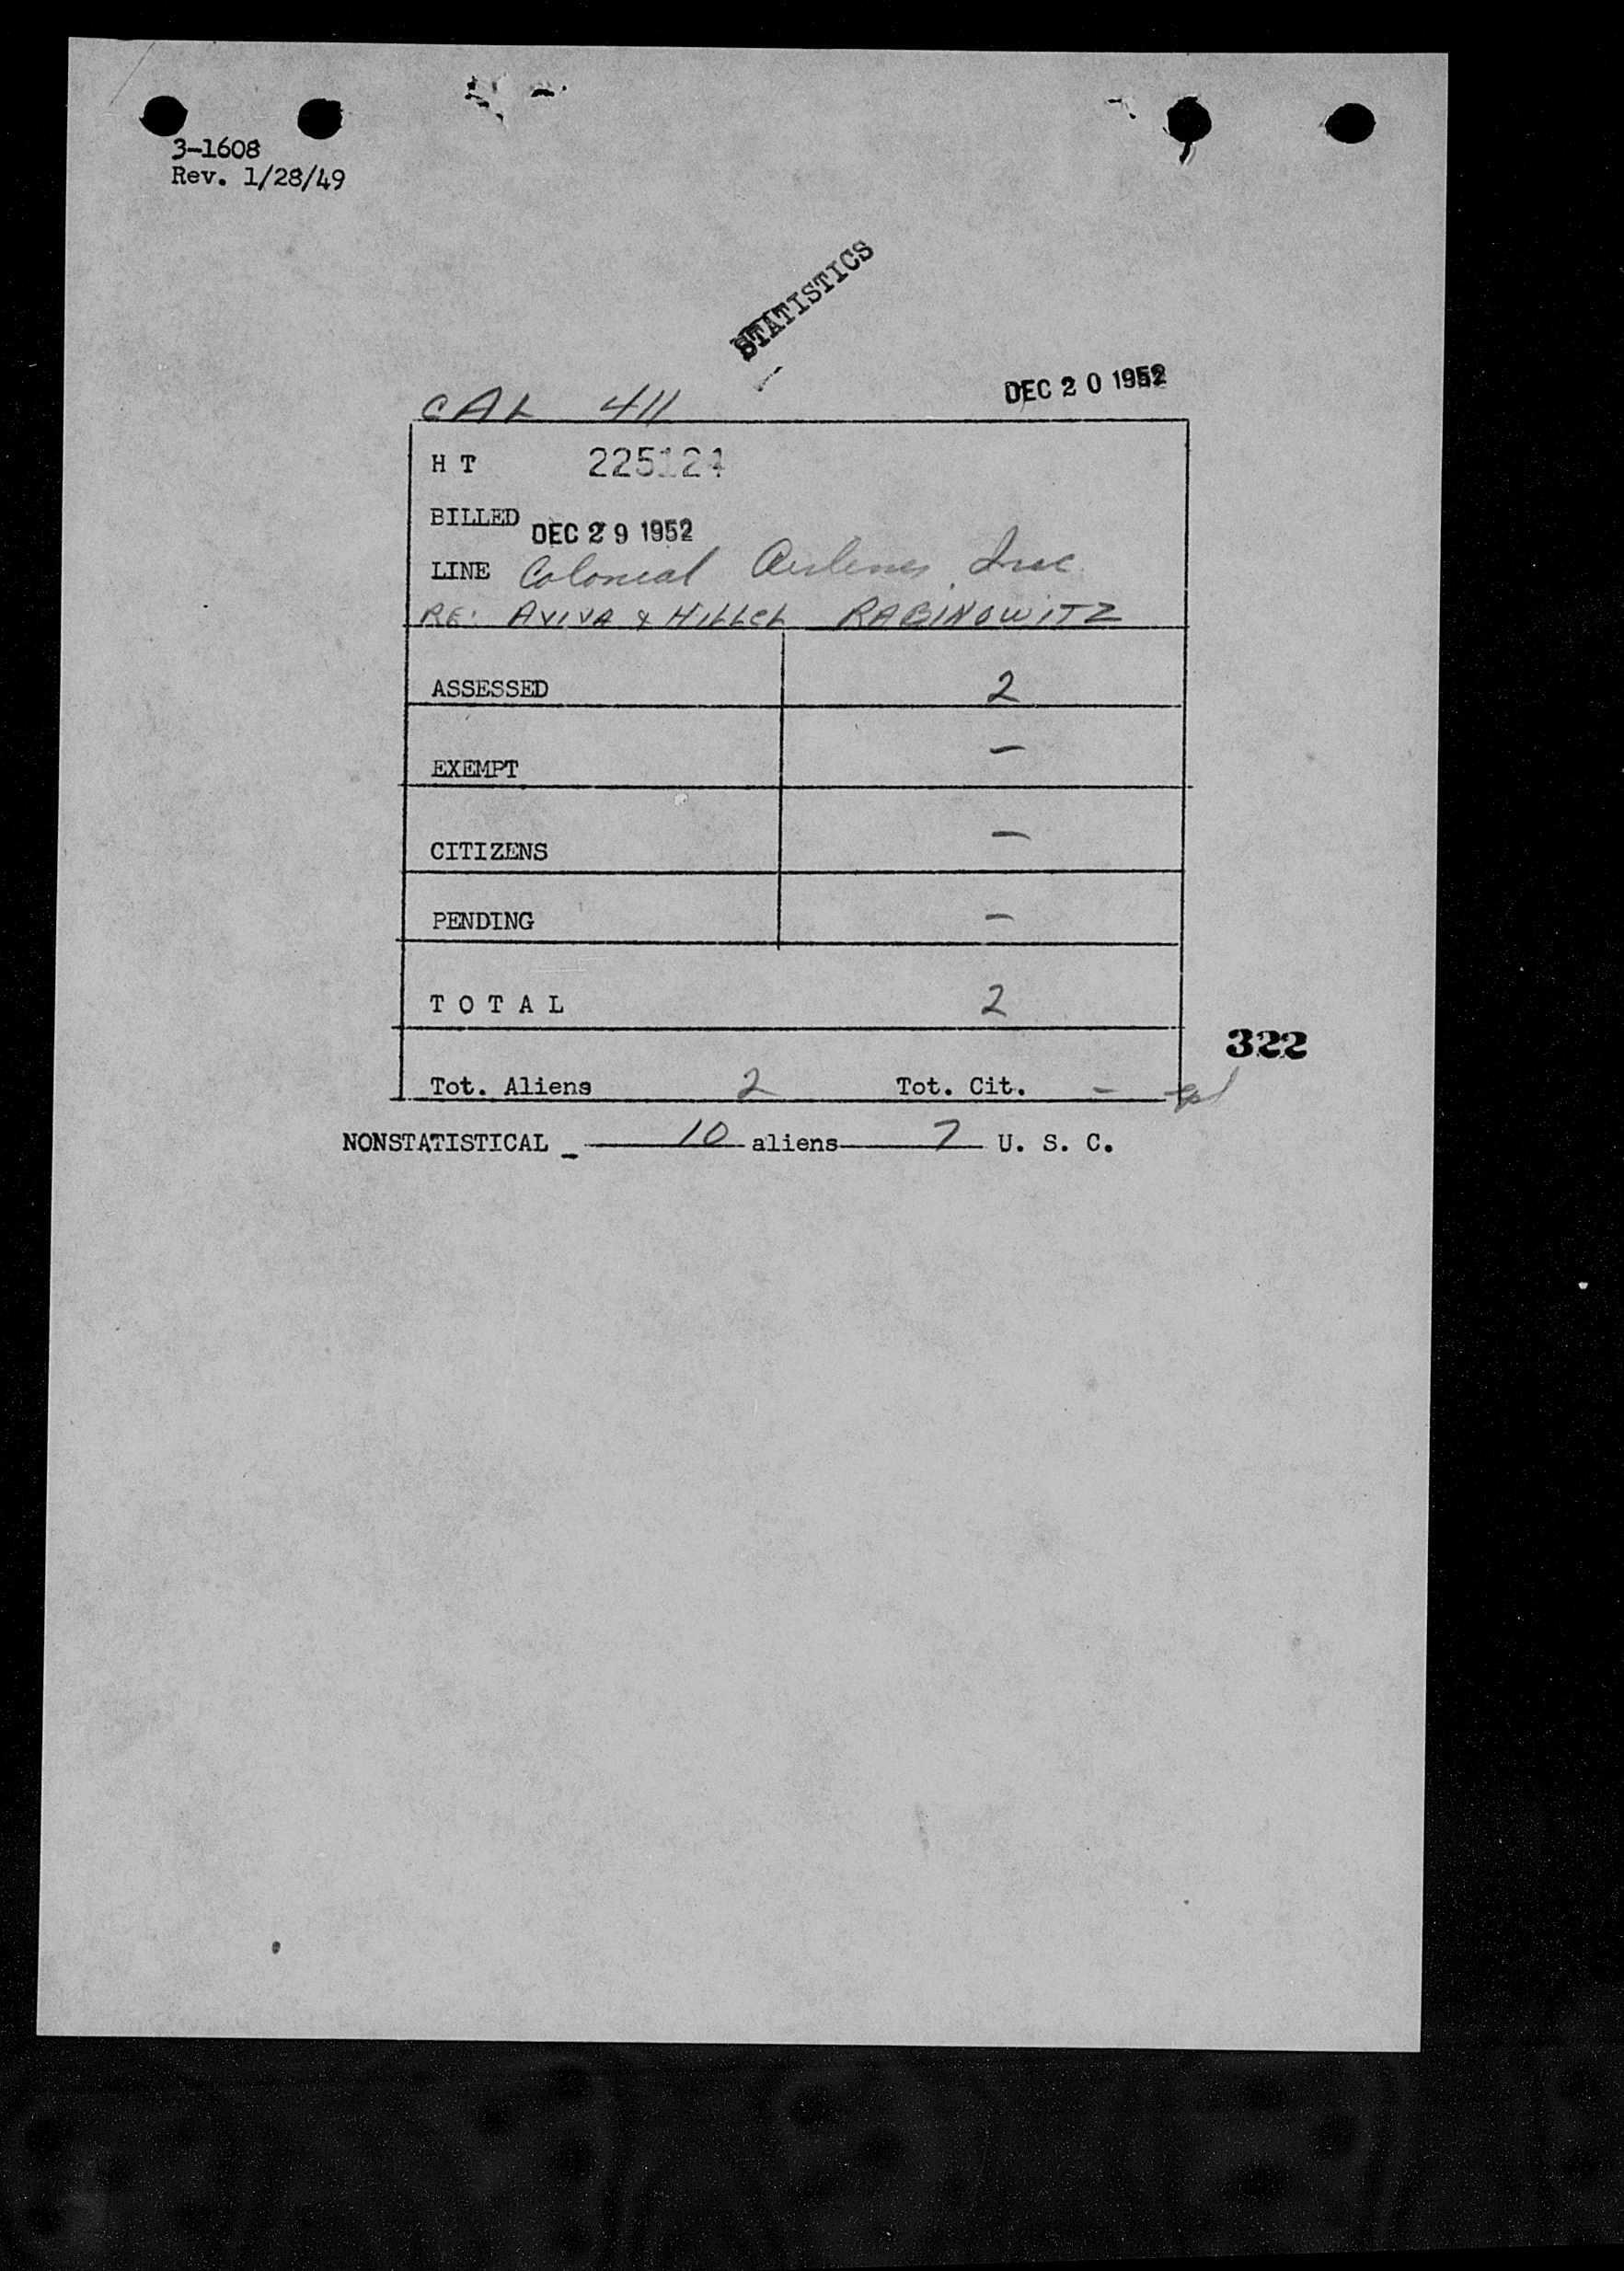 3-1608
Rev. 1/28/49
STATISTICS
CAL 411 DEC 20 1952
H T 225124
BILLED DEC 29 1952
LINE Colonial Airlines, Inc.
RE: AVIVA & HILLEL RABINOWITZ
ASSESSED 2
EXEMPT —
CITIZENS —
PENDING —
T O T A L 2
322
Tot. Aliens 2 Tot. Cit. -
NONSTATISTICAL - 10 aliens 7 U. S. C.